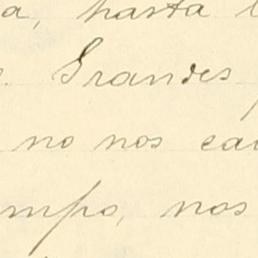 a, hasta l
. Grandes
no nos ca
mpo, nos